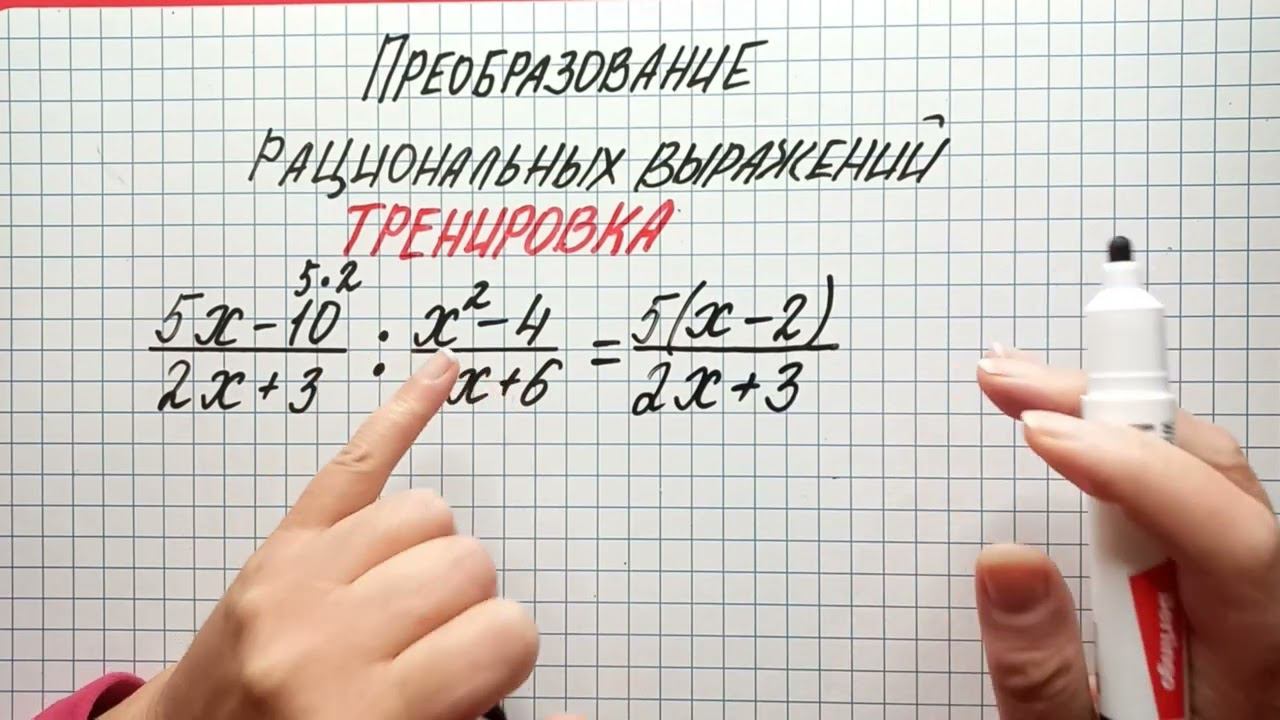 Преобразование
рациональных выражений
ТРЕНИРОВКА
5·2
5x-10 : x²-4 = 5(x-2)
2x+3 x+6 2x+3